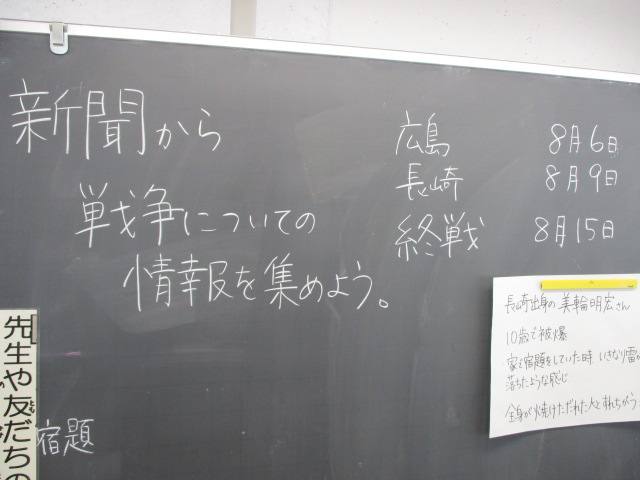 新聞から
戦争についての
情報を集めよう。
広島 8月6日
長崎 8月9日
終戦 8月15日
長崎出身の美輪明宏さん
10歳で被爆
家で宿題をしていた時 いきなり雷が
落ちたような感じ
全身が焼けただれた人とすれちがう
先生や友だちの
宿題